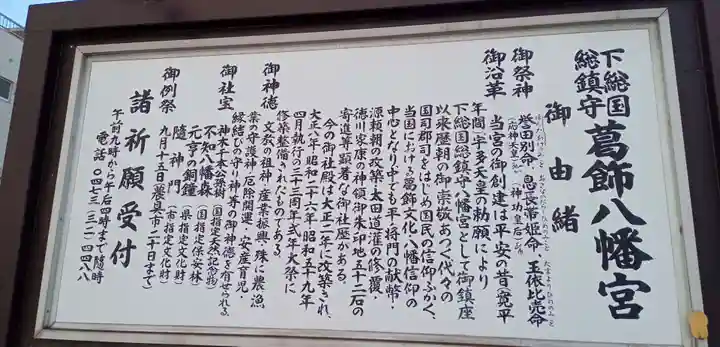 下総国
総鎮守
葛飾八幡宮
御由緒
御祭神
誉田別命 息長帯姫命 玉依比売命
(応神天皇) (神功皇后)
御沿革
当宮の御創建は平安の昔、寛平
年間、宇多天皇の勅願により
下総国総鎮守八幡宮として御鎮座
以来歴朝の御崇敬あつく、代々の
国司郡司をはじめ国民の信仰ふかく、
当国における葛飾文化、八幡信仰の
中心となり、中でも平将門の献幣・
源頼朝の改築・太田道灌の修覆・
徳川家康の神領御朱印地五十二石の
寄進等顕著な御社歴がある。
今の御社殿は大正二年に改築され、
大正八年・昭和二十六年・昭和五十九年
四月執行の三十三周年式年大祭に
修築整備されたものである。
御神徳
文教の祖神・産業振興・殊に農漁
業の守護神・厄除開運・安産育児・
縁結びの守り神等の御神徳を有せられる。
御社宝
神木千本公孫樹(国指定天然記念物)
不知八幡森(国指定保安林)
元亨の銅鐘(県指定文化財)
随神門(市指定文化財)
御例祭
九月十五日(農具市二十日まで)
諸祈願受付
午前九時から午后四時まで随時
電話〇四七三(三二)四四八八